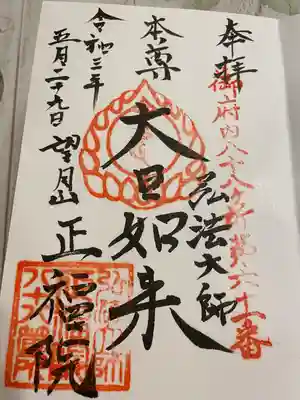 奉拝
御府内八十八ヶ所第六十一番
弘法大師
本尊
大日如来
令和三年
五月二十九日
望月山
正福院